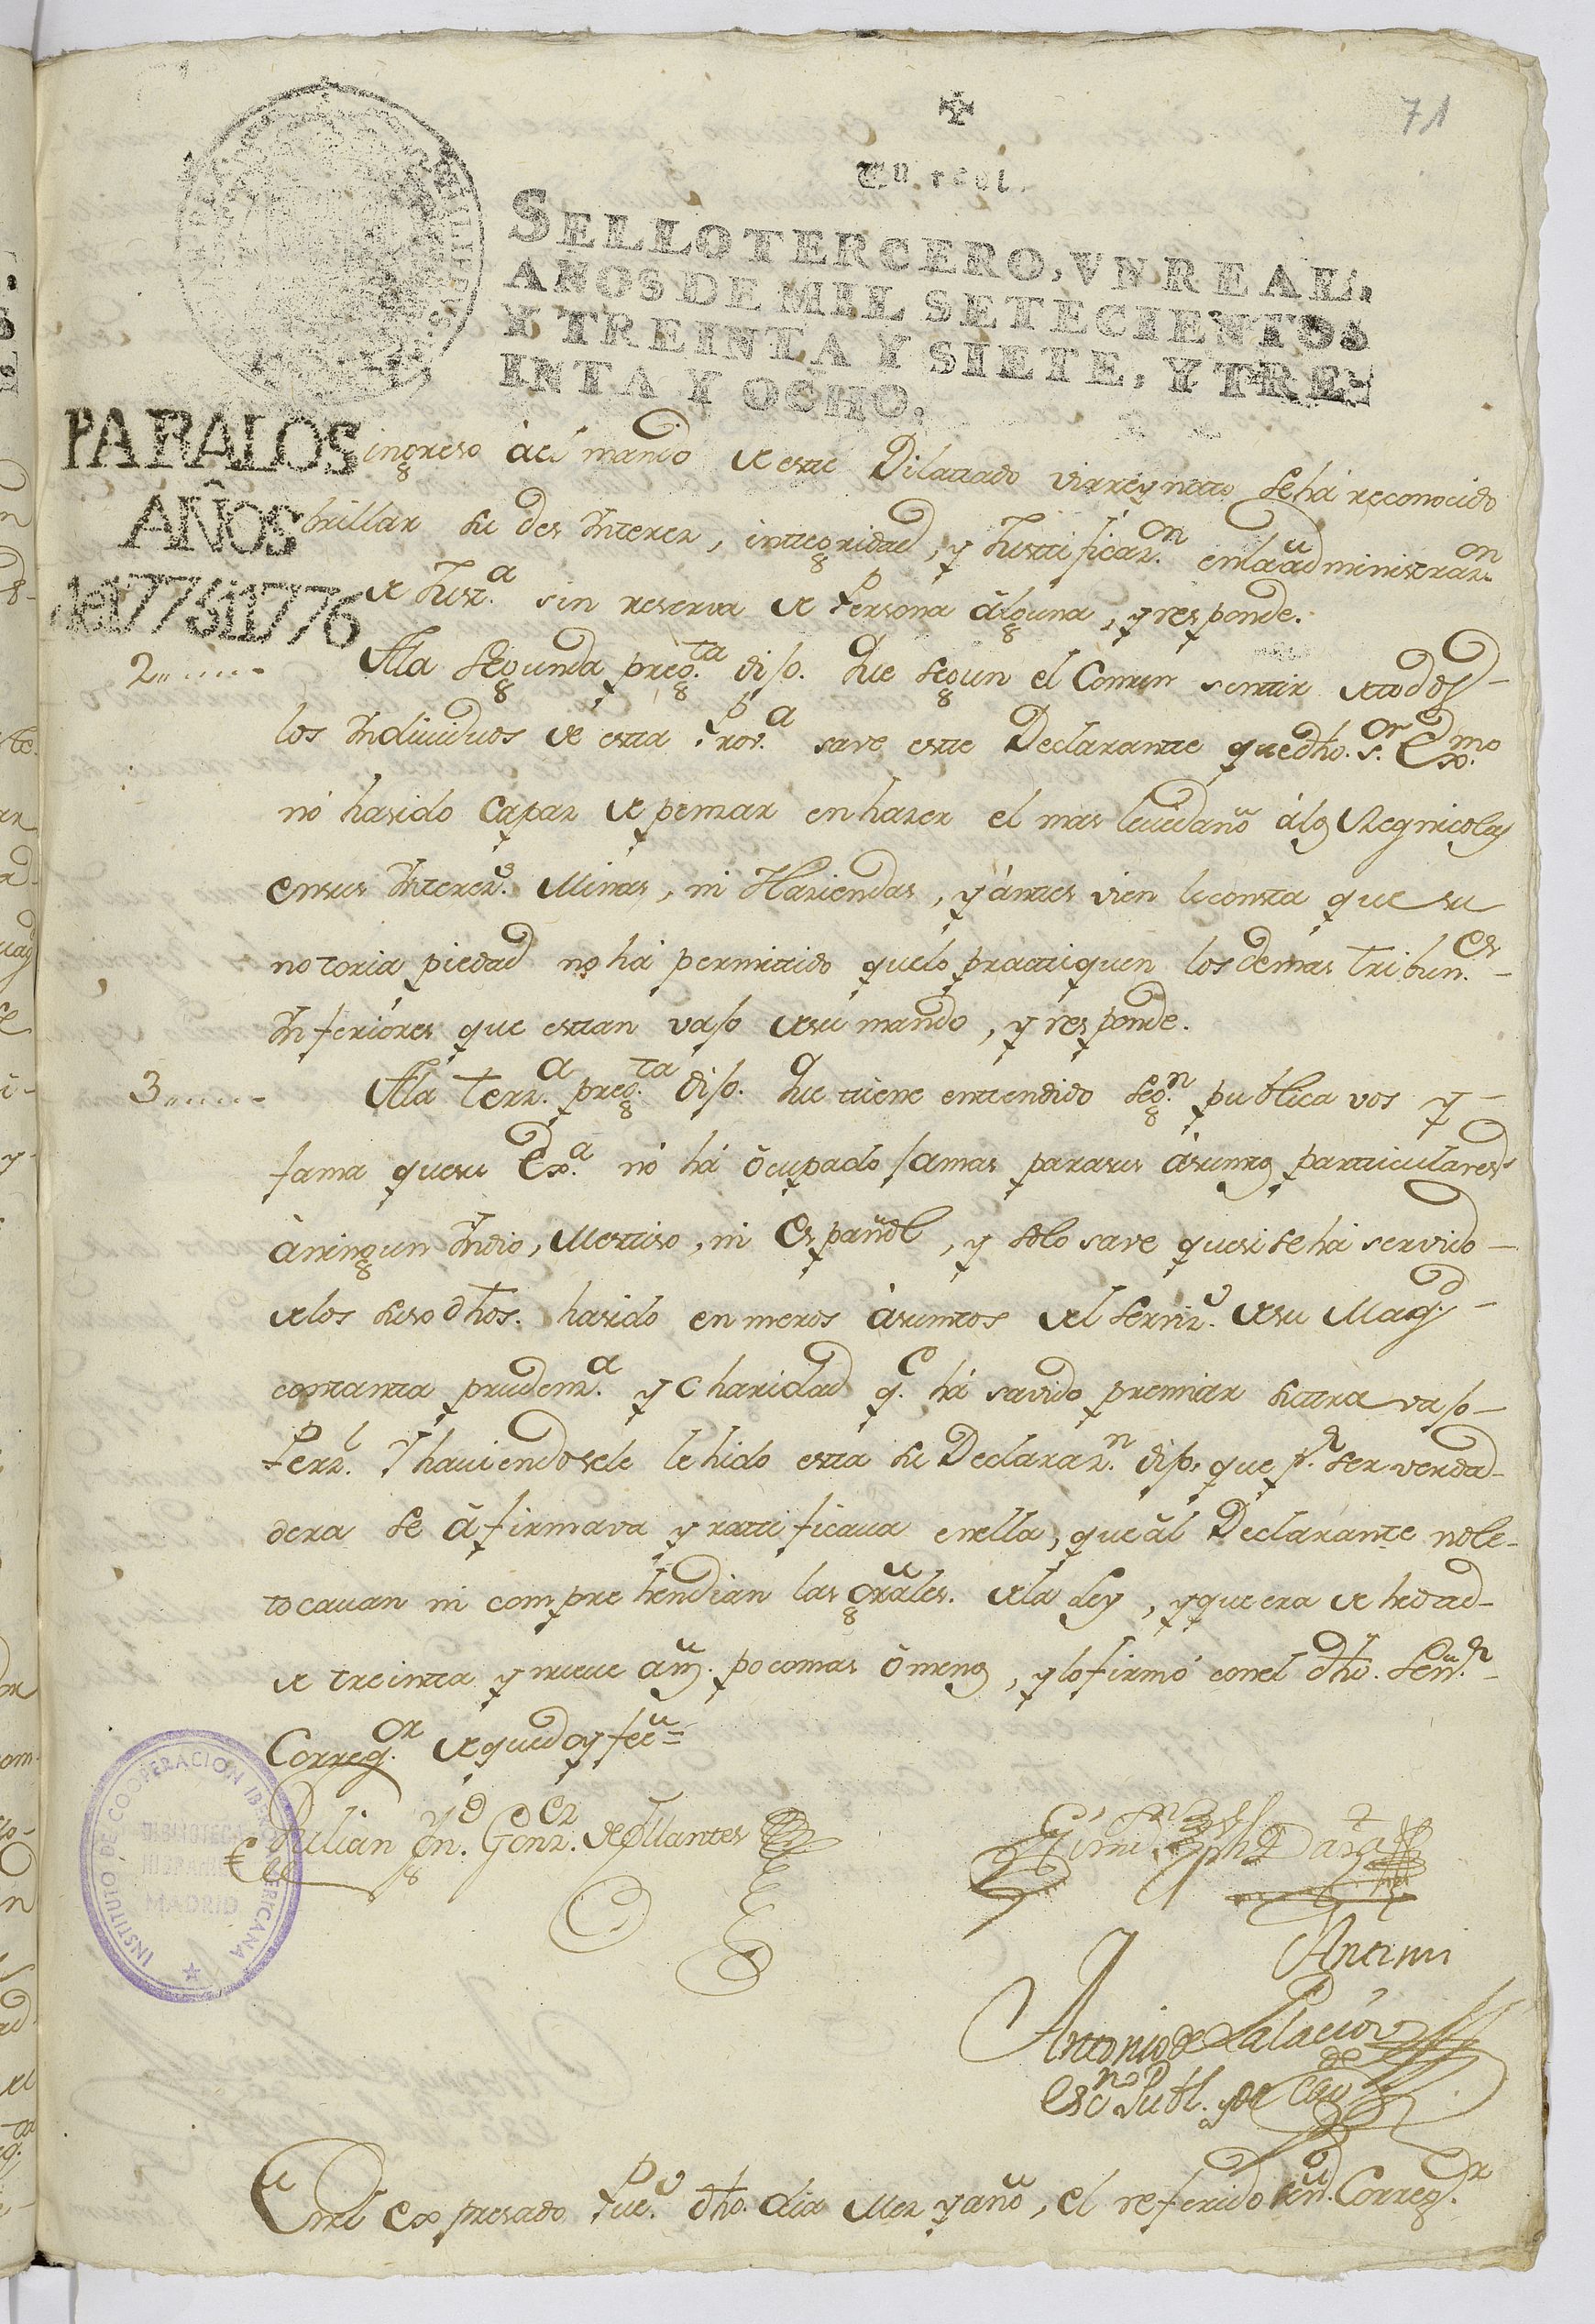 71
Un real.
SELLO TERCERO, VN REAL,
AÑOS DE MIL SETECIENTOS
Y TREINTA Y SIETE, Y TRE-
INTA Y OCHO.
PARA LOS
AÑOS
de 1775 i 1776
ingreso àel mando de este Dilatado virreynato se há reconocido
brillar su des Interez, integridad, y Justificazon. en la administrazon.
de Justa. sin reserva de Persona álguna, y responde.
2...... Ala Segunda pregta. dijo. Que segun el Comun sentir de todos
los Individuos de esta Prova. save este Declarante que dho. sor. Exmo.
nó ha sido capaz de pensar en hazer el mas leve daño álos Regnicolas
en sus Interezs. Minas, ni Haziendas, y ántes vien le consta que su
notoria piedad no há permitido que lo practiquen los demas Tribunes.
Inferióres que estan vajo de su mando, y responde.
3...... Ala Terza. pregta. dijo. Que tiene entendido Segn. publica vos y
fama que su Exa. nó há ôcupado jamas para sus ásuntos particulares
àningun Indio, Mestiso, ni Español, y solo save que si se há servido
de los suso dhos. ha sido en meros ásuntos del Servizo. de su Magd.
con tanta prudenza. y charidad qe. há savido premiar su travajo
Perzl. Y haviendosele lehido esta su Declarazn. dijo, que pr. ser verda-
dera se áfirmava y ratificava en ella, que ál Declarante no le
tocavan ni comprehendian las Grâles. de la Ley, y que era de hedad
de treinta y nueve añs. poco mas ô menos, y lo firmó con el dho. Señr.
Corregor. de que doy feê =
Julian Ygno. Gonzez. de Collantes
Ante mi
Antonio de Palacios
Escno. Publ. y de Cavdo
En el expresado Puevo. dho. dia Mez y año, el referido señor. Corregr.
INSTITUTO DE COOPERACION IBEROAMERICANA
BIBLIOTECA
HISPANICA
MADRID